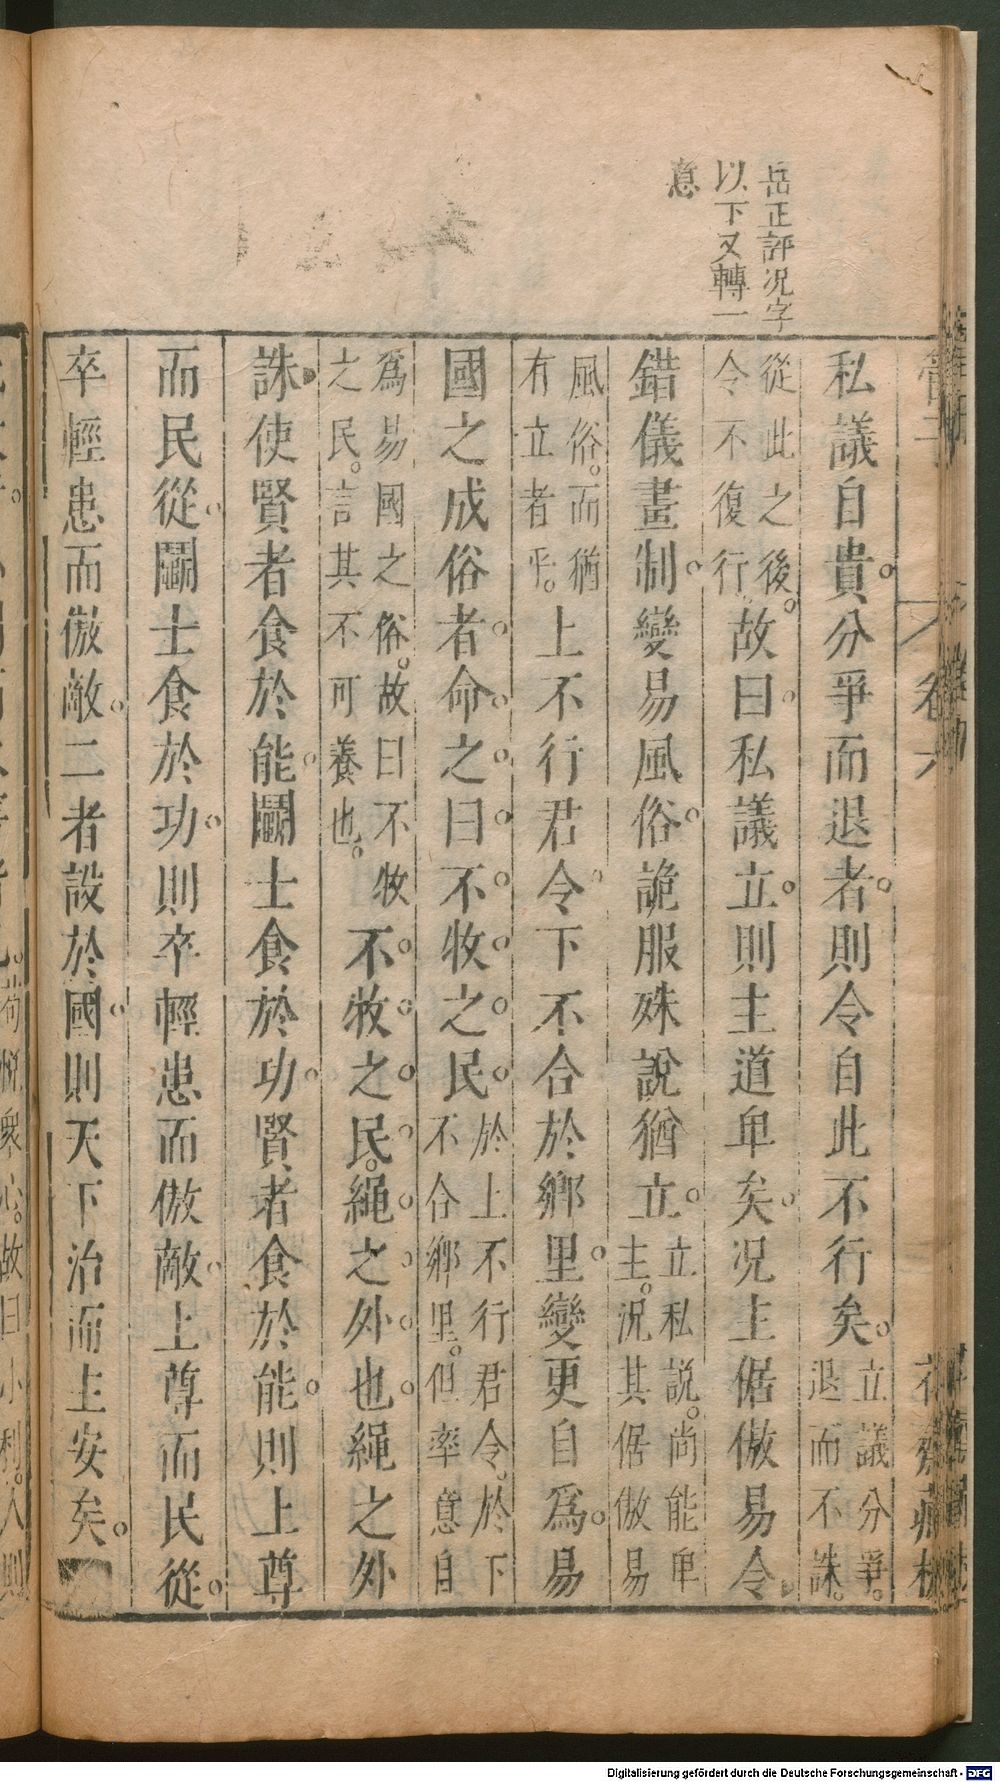 岳正評况字
以下又轉一
意
私議自貴分爭而退者則令自此不行矣立議分爭。退而不誅。
從此之後。令不復行。故曰私議立則主道卑矣况主倨傲易令
錯儀畫制變易風俗詭服殊說猶立立私說。尚能卑主。况其倨傲易
風俗。而猶有立者乎。上不行君令下不合於鄉里變更自爲易
國之成俗者命之曰不牧之民於上不行君令。於下不合鄉里。但率意自
爲易國之俗。故曰不牧之民。言其不可養也。不牧之民。繩之外也繩之外
誅使賢者食於能鬬士食於功賢者食於能則上尊
而民從鬬士食於功則卒輕患而傲敵上尊而民從
卒輕患而傲敵二者設於國則天下治而主安矣
管子
卷六
花齋藏板
苟悅衆心。故曰小利。人則
Digitalisierung gefördert durch die Deutsche Forschungsgemeinschaft - DFG